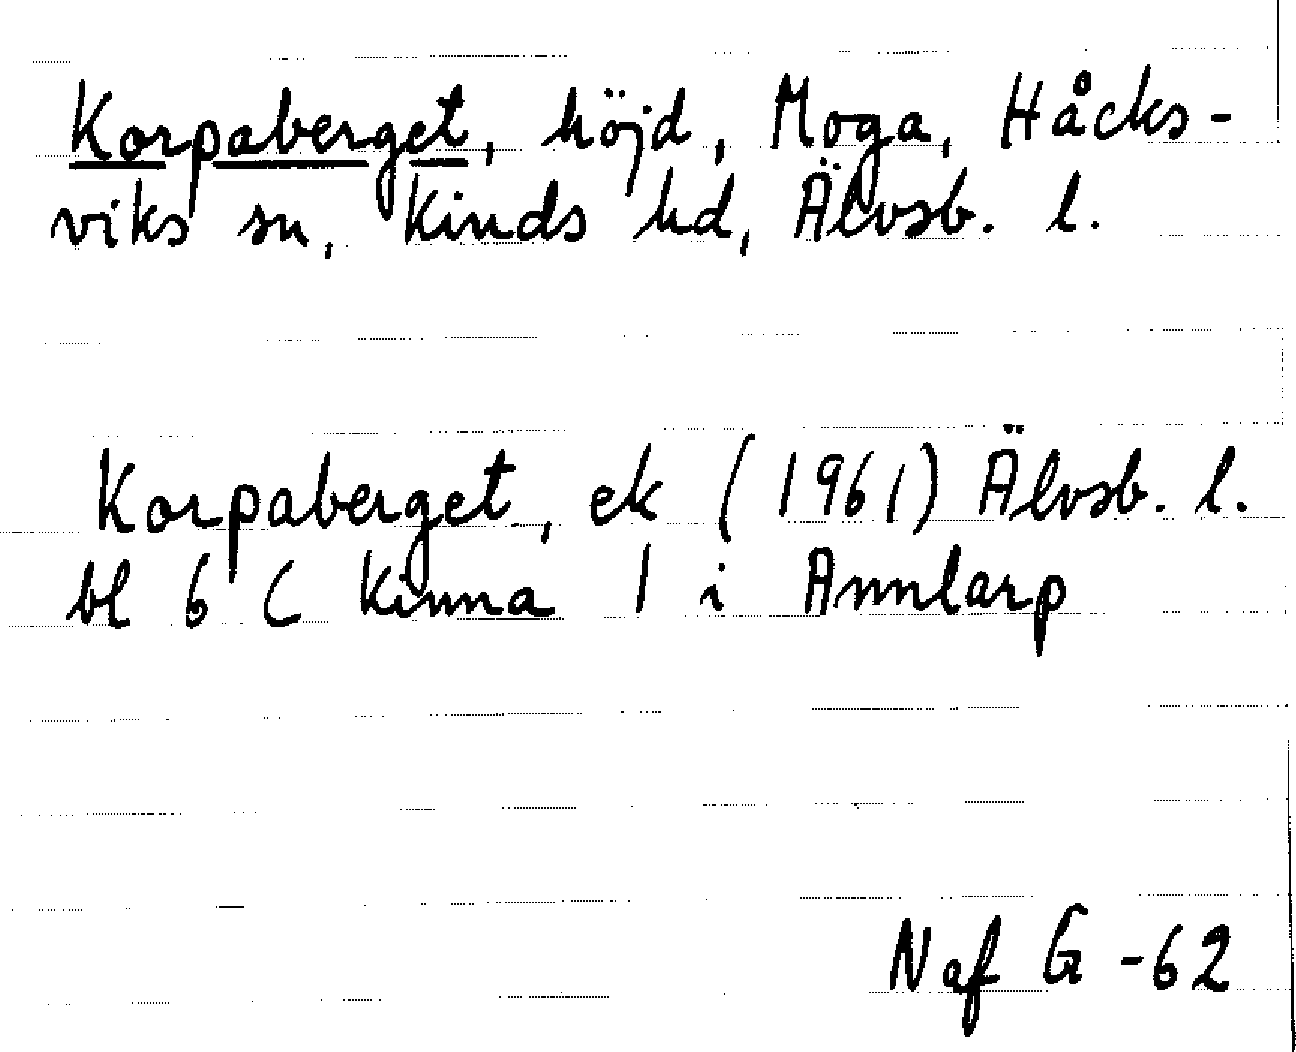 Korpaberget, höjd, Moga, Håcks-
viks sn, Kinds hd, Älvsb. l.
Korpaberget, ek (1961) Älvsb. l.
bl 6 C Kinna 1 i Annlarp
Naf G -62